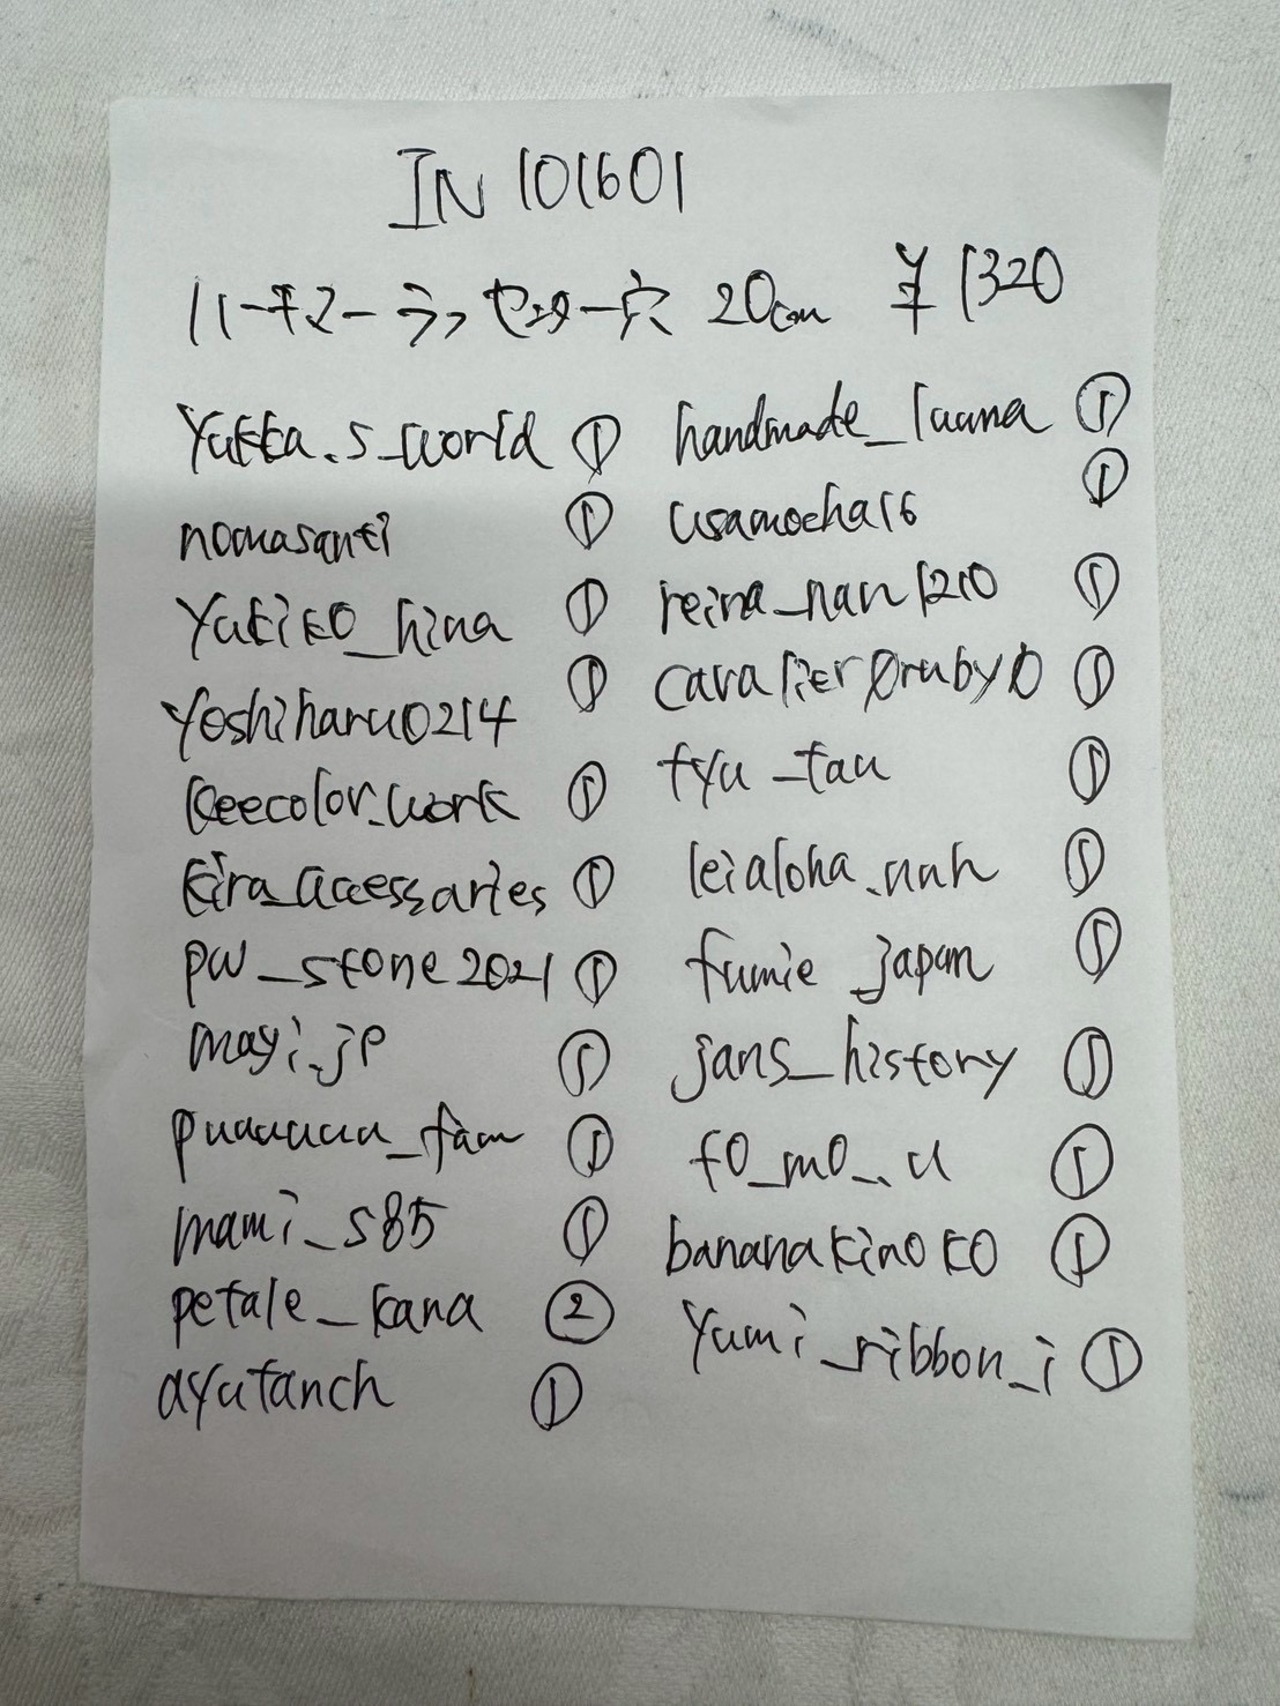 IN 101601
ハーキマーラフ センター穴 20cm ¥1320
yukka.s_world ①
nomasanti ①
yukiko_hina ①
yoshiharu0214 ①
keecolor_work ①
kira_accessaries ①
pw_stone2021 ①
mayi.jp ①
puuuuuu_fam ①
mami_s85 ①
petale_kana ②
ayutanch ①
handmade_luuna ①
usamocha16 ①
reina_nan1210 ①
cavalier0ruby0 ①
fyu_fau ①
leialoha.nnh ①
fumie_japan ①
jans_history ①
fo_mo_.u ①
bananakinoko ①
yumi_ribbon_i ①